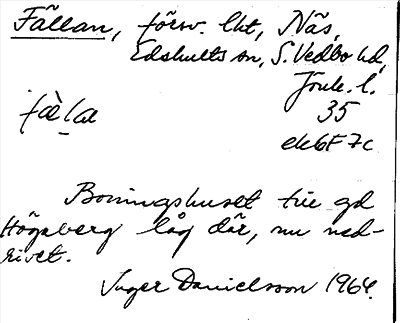 Fällan, försv. lht, Näs,
Edshults sn, S. Vedbo hd,
Jönk. l.
fæ̀lạ 35
ek 6F 7c
Boningshuset till gd
Högaberg låg där, nu ned-
rivet.
Inger Danielsson 1964.